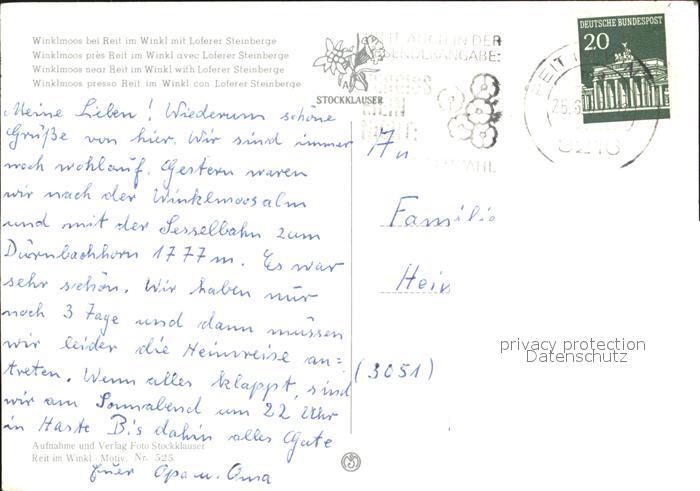 Winklmoos bei Reit im Winkl mit Loferer Steinberge
Winklmoos près Reit im Winkl avec Loferer Steinberge
Winklmoos near Reit im Winkl with Loferer Steinberge
Winklmoos presso Reit im Winkl con Loferer Steinberge
STOCKKLAUSER
Meine Lieben! Wiederum schöne
Grüße von hier. Wir sind immer
noch wohlauf. Gestern waren
wir nach der Winklmoosalm
und mit der Sesselbahn zum
Dürnbachhorn 1777 m. Es war
sehr schön. Wir haben nur
noch 3 Tage und dann müssen
wir leider die Heimreise an=
treten. Wenn alles klappt, sind
wir am Sonnabend um 22 Uhr
in Haste Bis dahin alles Gute
Euer Opa u. Oma
Aufnahme und Verlag Foto Stockklauser
Reit im Winkl - Motiv. Nr. 525
IN DER
ABSENDERANGABE:
DEUTSCHE BUNDESPOST
20
REIT I
25.6
An
Familie
Hein
(3051)
privacy protection
Datenschutz